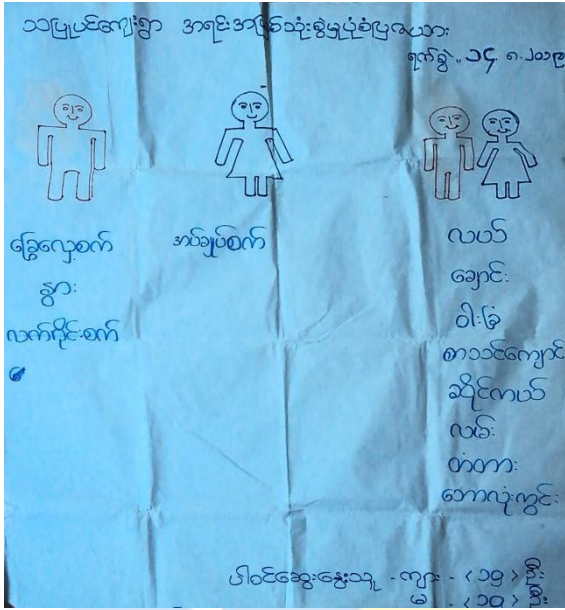 သပြုပင်ကျေးရွာ အရင်းအမြစ်သုံးစွဲမှုပုံစံပြဇယား
ရက်စွဲ၊၊ ၁၄.၈.၂၀၁၉
ခြွေလှေ့စက်
နွား
လက်ဂိုင်းစက်
အပ်ချုပ်စက်
လယ်
ချောင်း
ဝါးခြံ
စာသင်ကျောင်း
ဆိုင်ကယ်
လမ်း
တံတား
ဘောလုံးကွင်း
ပါဝင်ဆွေးနွေးသူ - ကျား - <၁၅> ဦး
မ - <၁၃> ဦး